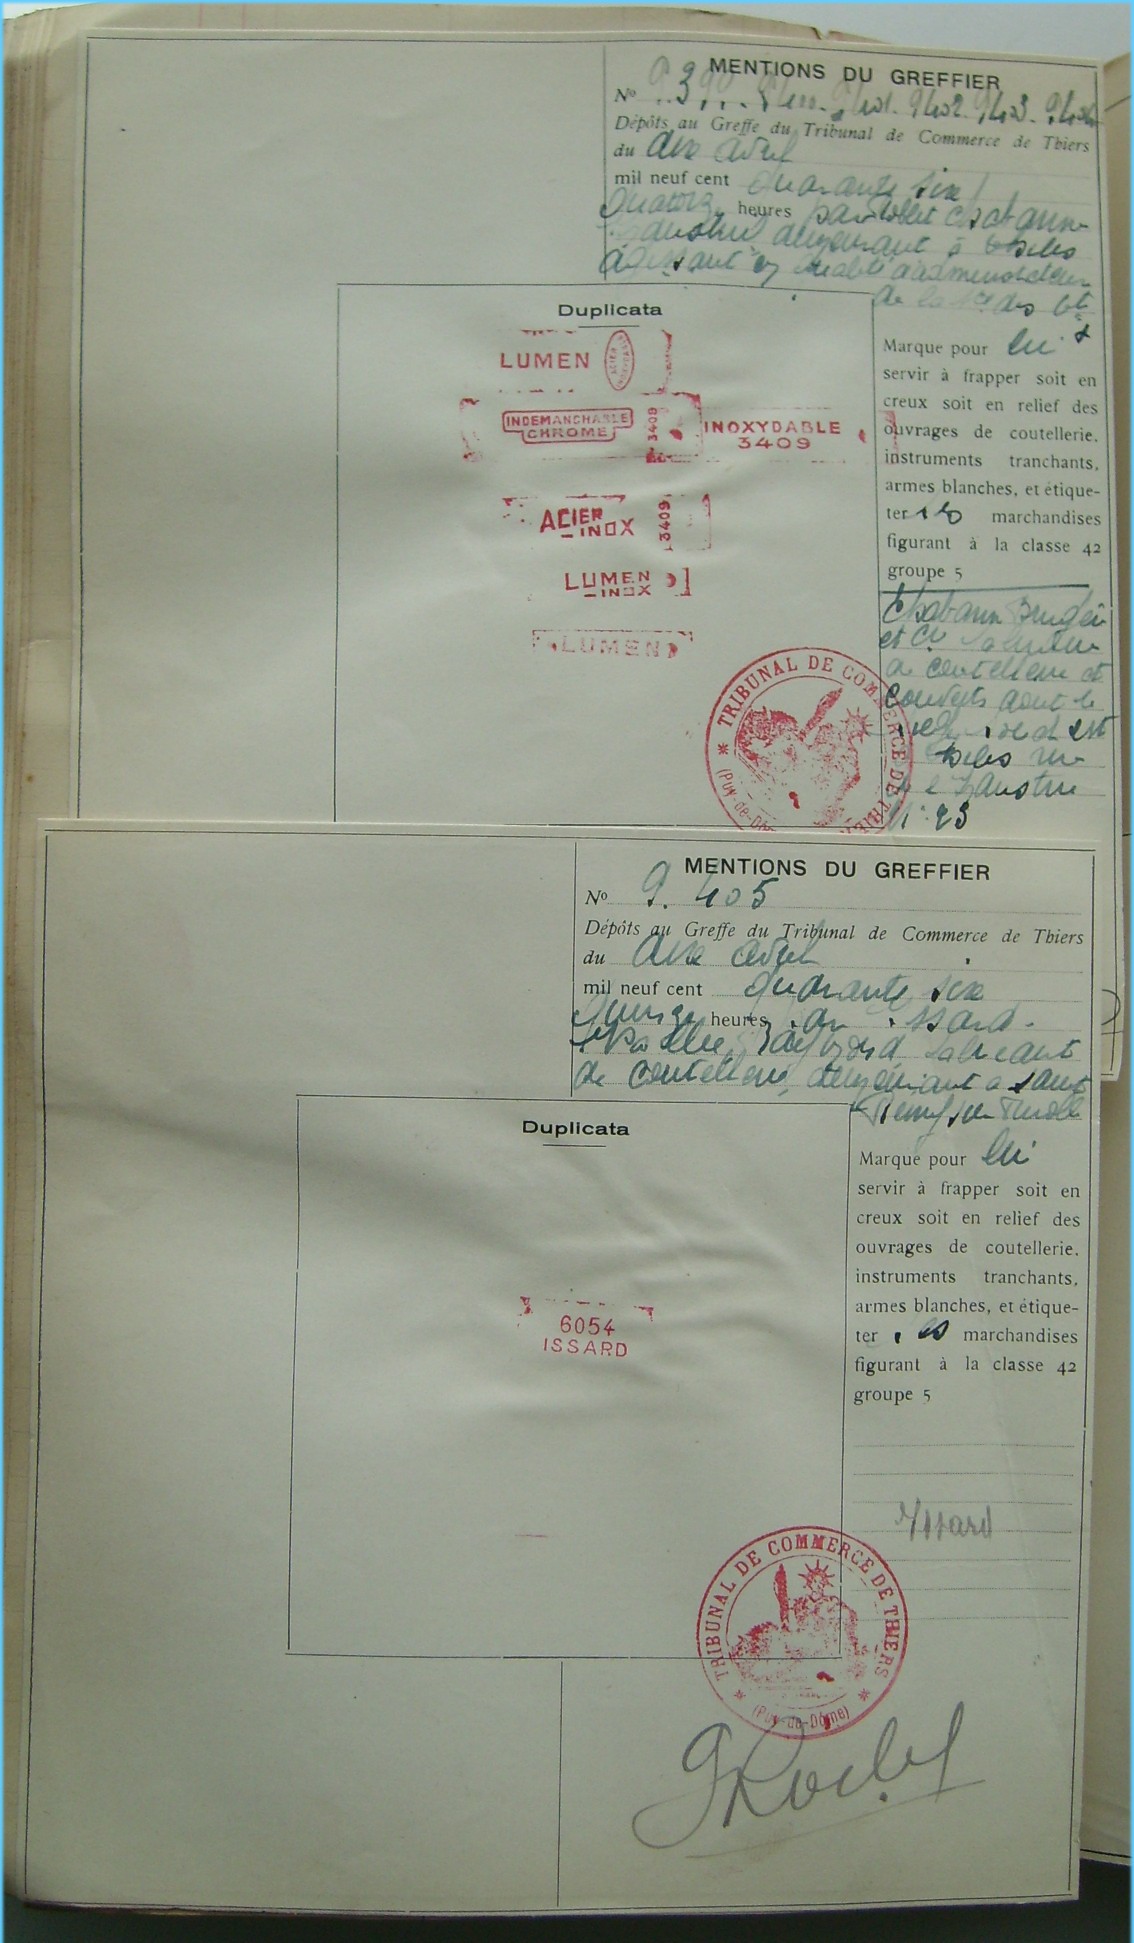 MENTIONS DU GREFFIER
No 9.399. 9400. 9401. 9402. 9403. 9404
Dépôts au Greffe du Tribunal de Commerce de Thiers
du dix avril
mil neuf cent quarante six
quatorze heures par
demeurant à
agissant en qualité d'administrateur
de la Sté des Ets
Duplicata
LUMEN ACIER INOXYDABLE
INDEMANCHABLE
CHROME
3409
INOXYDABLE
3409
ACIER
INOX
3409
LUMEN
INOX
LUMEN
Marque pour lui
servir à frapper soit en
creux soit en relief des
ouvrages de coutellerie,
instruments tranchants,
armes blanches, et étique-
ter les marchandises
figurant à la classe 42
groupe 5
et Cie
de coutellerie et
couverts dont le
est
rue
de l'Industrie
N° 23
TRIBUNAL DE COMMERCE DE THIERS
(Puy-de-Dôme)
MENTIONS DU GREFFIER
No 9.405
Dépôts au Greffe du Tribunal de Commerce de Thiers
du dix avril
mil neuf cent quarante six
quinze heures par Issard
Raymond fabricant
de coutellerie, demeurant à Saint
Remy sur Durolle
Duplicata
6054
ISSARD
Marque pour lui
servir à frapper soit en
creux soit en relief des
ouvrages de coutellerie,
instruments tranchants,
armes blanches, et étique-
ter les marchandises
figurant à la classe 42
groupe 5
Issard
TRIBUNAL DE COMMERCE DE THIERS
(Puy-de-Dôme)